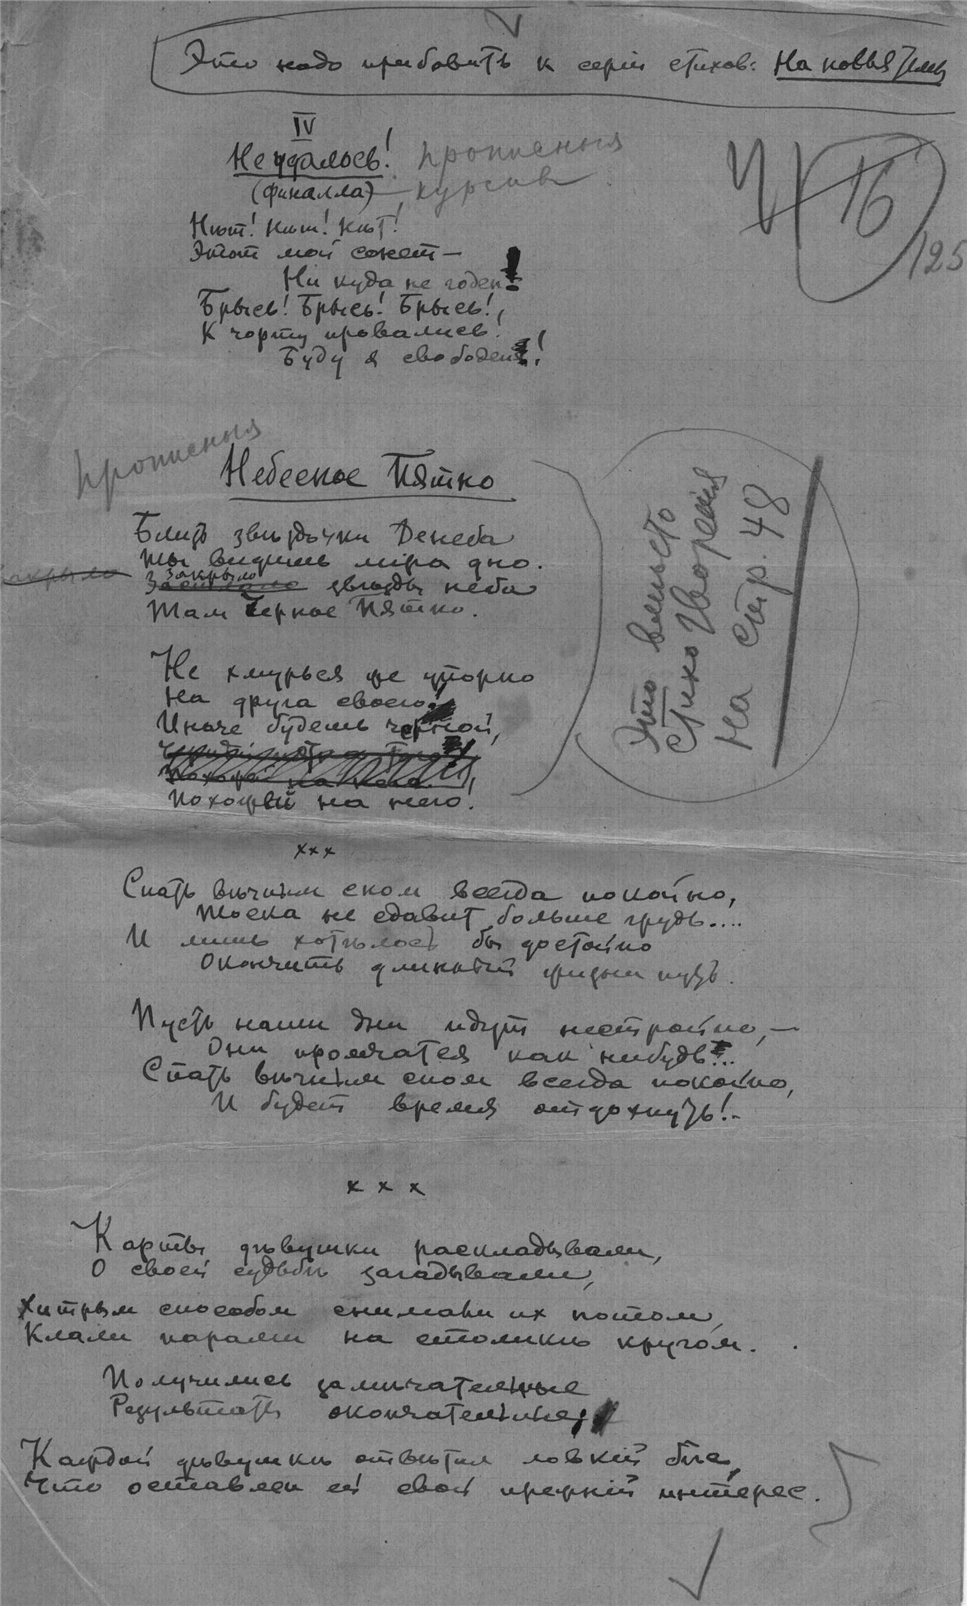 Это надо прибавить к серiи стихов: На новыя темы
IV
Не удалось! прописныя
(Финалла) курсив
Нѣт! Нѣт! Нѣт!
Этот мой сонет —
Ни куда не годен!
Брысь! Брысь! Брысь!,
К чорту провались!
Буду я свободен!
16
125
прописныя
Небесное Пятно
Близь звѣздочки Денеба
Ты видишь мiра дно.
закрыло
Закрыло звѣзды неба
Там Черное Пятно.
Не хмурься же упорно
На друга своего!
Иначе будешь черной,
Похожей на него!
Это вместо
стихотворения
на стр. 48
×××
Спать вѣчным сном всегда покойно,
Тоска не сдавит больше грудь....
И лишь хотѣлось бы достойно
Окончить длинный жизни путь.
Пусть наши дни идут нестройно, —
Они промчатся как нибудь!..
Спать вѣчным сном всегда покойно,
И будет время отдохнуть!..
× × ×
Карты дѣвушки раскладывали,
О своей судьбѣ загадывали,
Хитрым способом снимали их потом,
Клали парами на столикѣ кругом.
Получились замѣчательные
Результаты окончательные;
Каждой дѣвушкѣ отвѣтил ловкiй бѣс,
Что оставлен ей свой прежнiй интерес.